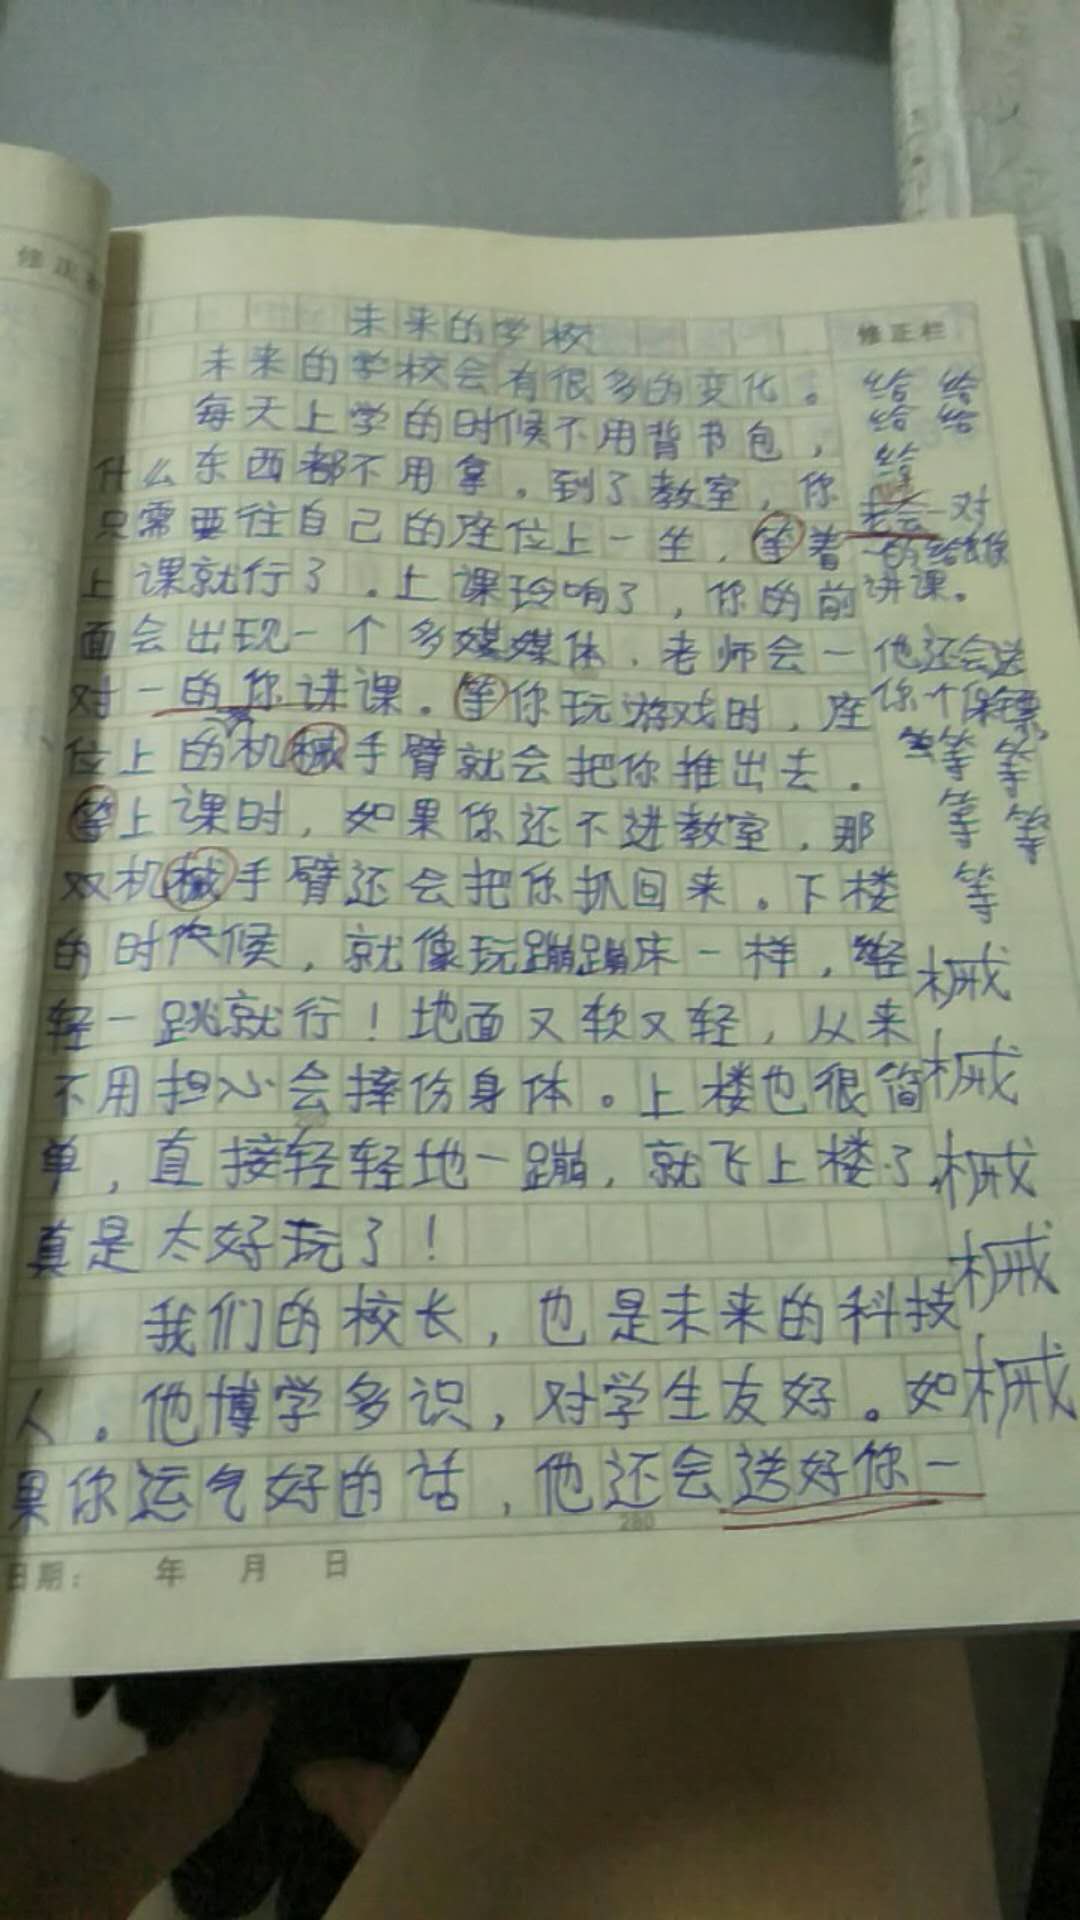 修正栏
未来的学校
未来的学校会有很多的变化。
每天上学的时候不用背书包，
什么东西都不用拿。到了教室，你
只需要往自己的座位上一坐，等着
上课就行了。上课玲响了，你的前
面会出现一个多媒媒体，老师会一
对一的你讲课。等你玩游戏时，座
位上的机械手臂就会把你推出去。
等上课时，如果你还不进教室，那
双机械手臂还会把你抓回来。下楼
的时候，就像玩蹦蹦床一样，轻
轻一跳就行！地面又软又轻，从来
不用担心会摔伤身体。上楼也很简
单，直接轻轻地一蹦，就飞上楼了，
真是太好玩了！
我们的校长，也是未来的科技
人。他博学多识，对学生友好。如
果你运气好的话，他还会送好你一
280
日期： 年 月 日
修正栏
给 给
给 给
老师会一对
一的给你
讲课。
他还会送
你一个保镖
等 等
等 等
等
械
械
械
械
械